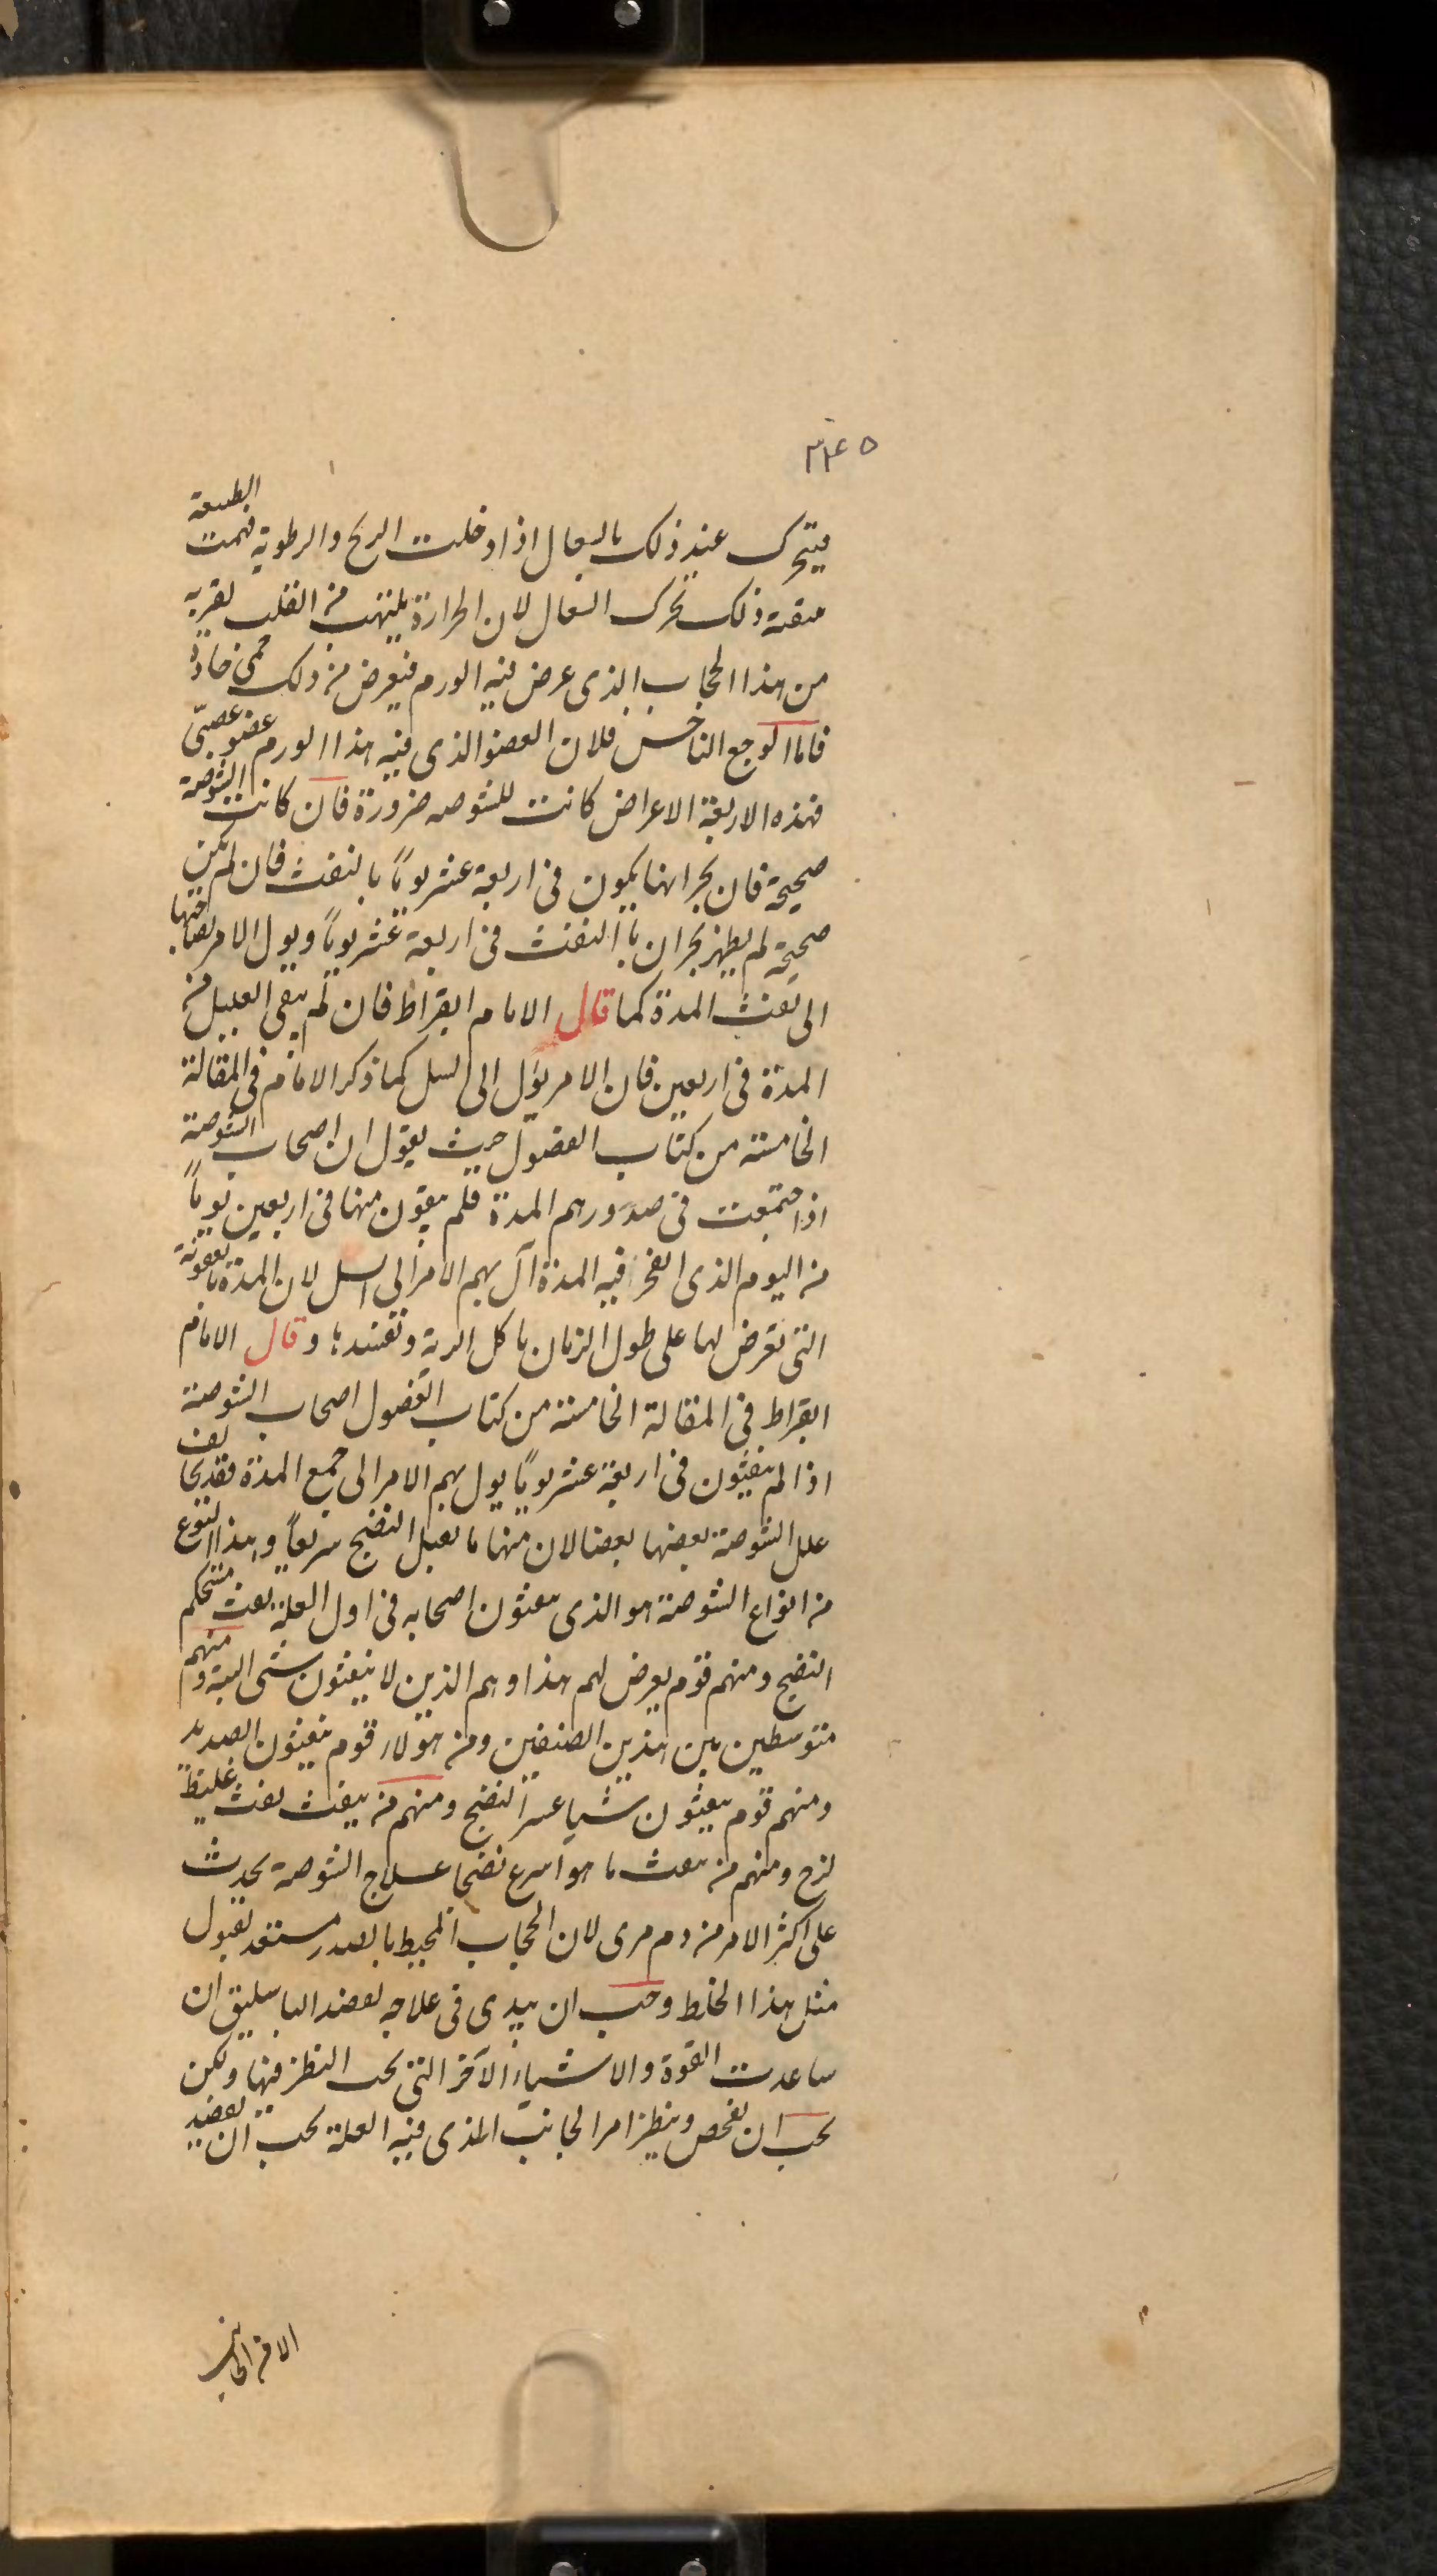 ٣٤٥
فيتحرك عند ذلك بالسعال اذا دخلت الريح والرطوبة فهمت الطبيعة
بنقية ذلك تحرك السعال لان الحرارة يلتهب من القلب لقربه
من هذا الحجاب الذى عرض فيه الورم فيعرض من ذلك حمى حادة
فاما الوجع الناخس فلان العضو الذى فيه هذا الورم عضو عصبى
فهذه الاربعة الاعراض كانت للشوصه ضرورة فان كانت الشوصة
صحيحة فان بحرانها يكون فى اربعة عشر يوماً بالنفث فان لم يكن
صحيحة لم يظهر بحران بالنفث فى اربعة عشر يوماً ويول الامر بصاحبها
الى نفث المدة كما قال الامام ابقراط فان لم ينقى العليل من
المدة فى اربعين فان الامر يؤل الى السل كما ذكر الامام فى المقالة
الخامسة من كتاب الفصول حيث يقول ان اصحاب الشوصة
اذا اجتمعت فى صدورهم المدة فلم ينقون منها فى اربعين يوماً
من اليوم الذى انفجر فيه المدة آل بهم الامر الى السل لان المدة بالعفونة
التى تعرض لها على طول الزمان ياكل الرية وتفسدها وقال الامام
ابقراط فى المقالة الخامسة من كتاب الفصول اصحاب الشوصة
اذا لم ينفثون فى اربعة عشر يوماً يول بهم الامر الى جمع المدة فقد يخالف
علل الشوصة بعضها بعضا لان منها ما يقبل النضج سريعاً وهذا النوع
من انواع الشوصة هو الذى ينفثون اصحابه فى اول العلة نفث مستحكم
النضج ومنهم قوم يعرض لهم هذا وهم الذين لا ينفثون شى البتة ومنهم
متوسطين بين هذين الصنفين ومن هولاء قوم ينفثون الصديد
ومنهم قوم ينفثون شيا عسر النضج ومنهم من ينفث نفث غليظ
لزج ومنهم من ينفث ما هو اسرع نضجا علاج الشوصة يحدث
على اكثر الامر من دم مرى لان الحجاب المحيط بالصدر مستعد لقبول
مثل هذا الخلط وجب ان يبدى فى علاجه بفصد الباسليق ان
ساعدت القوة والاشياء الآخر التى يجب النظر فيها ولكن
يجب ان يفحص وينظر امر الجانب الذى فيه العلة يجب ان يفصد